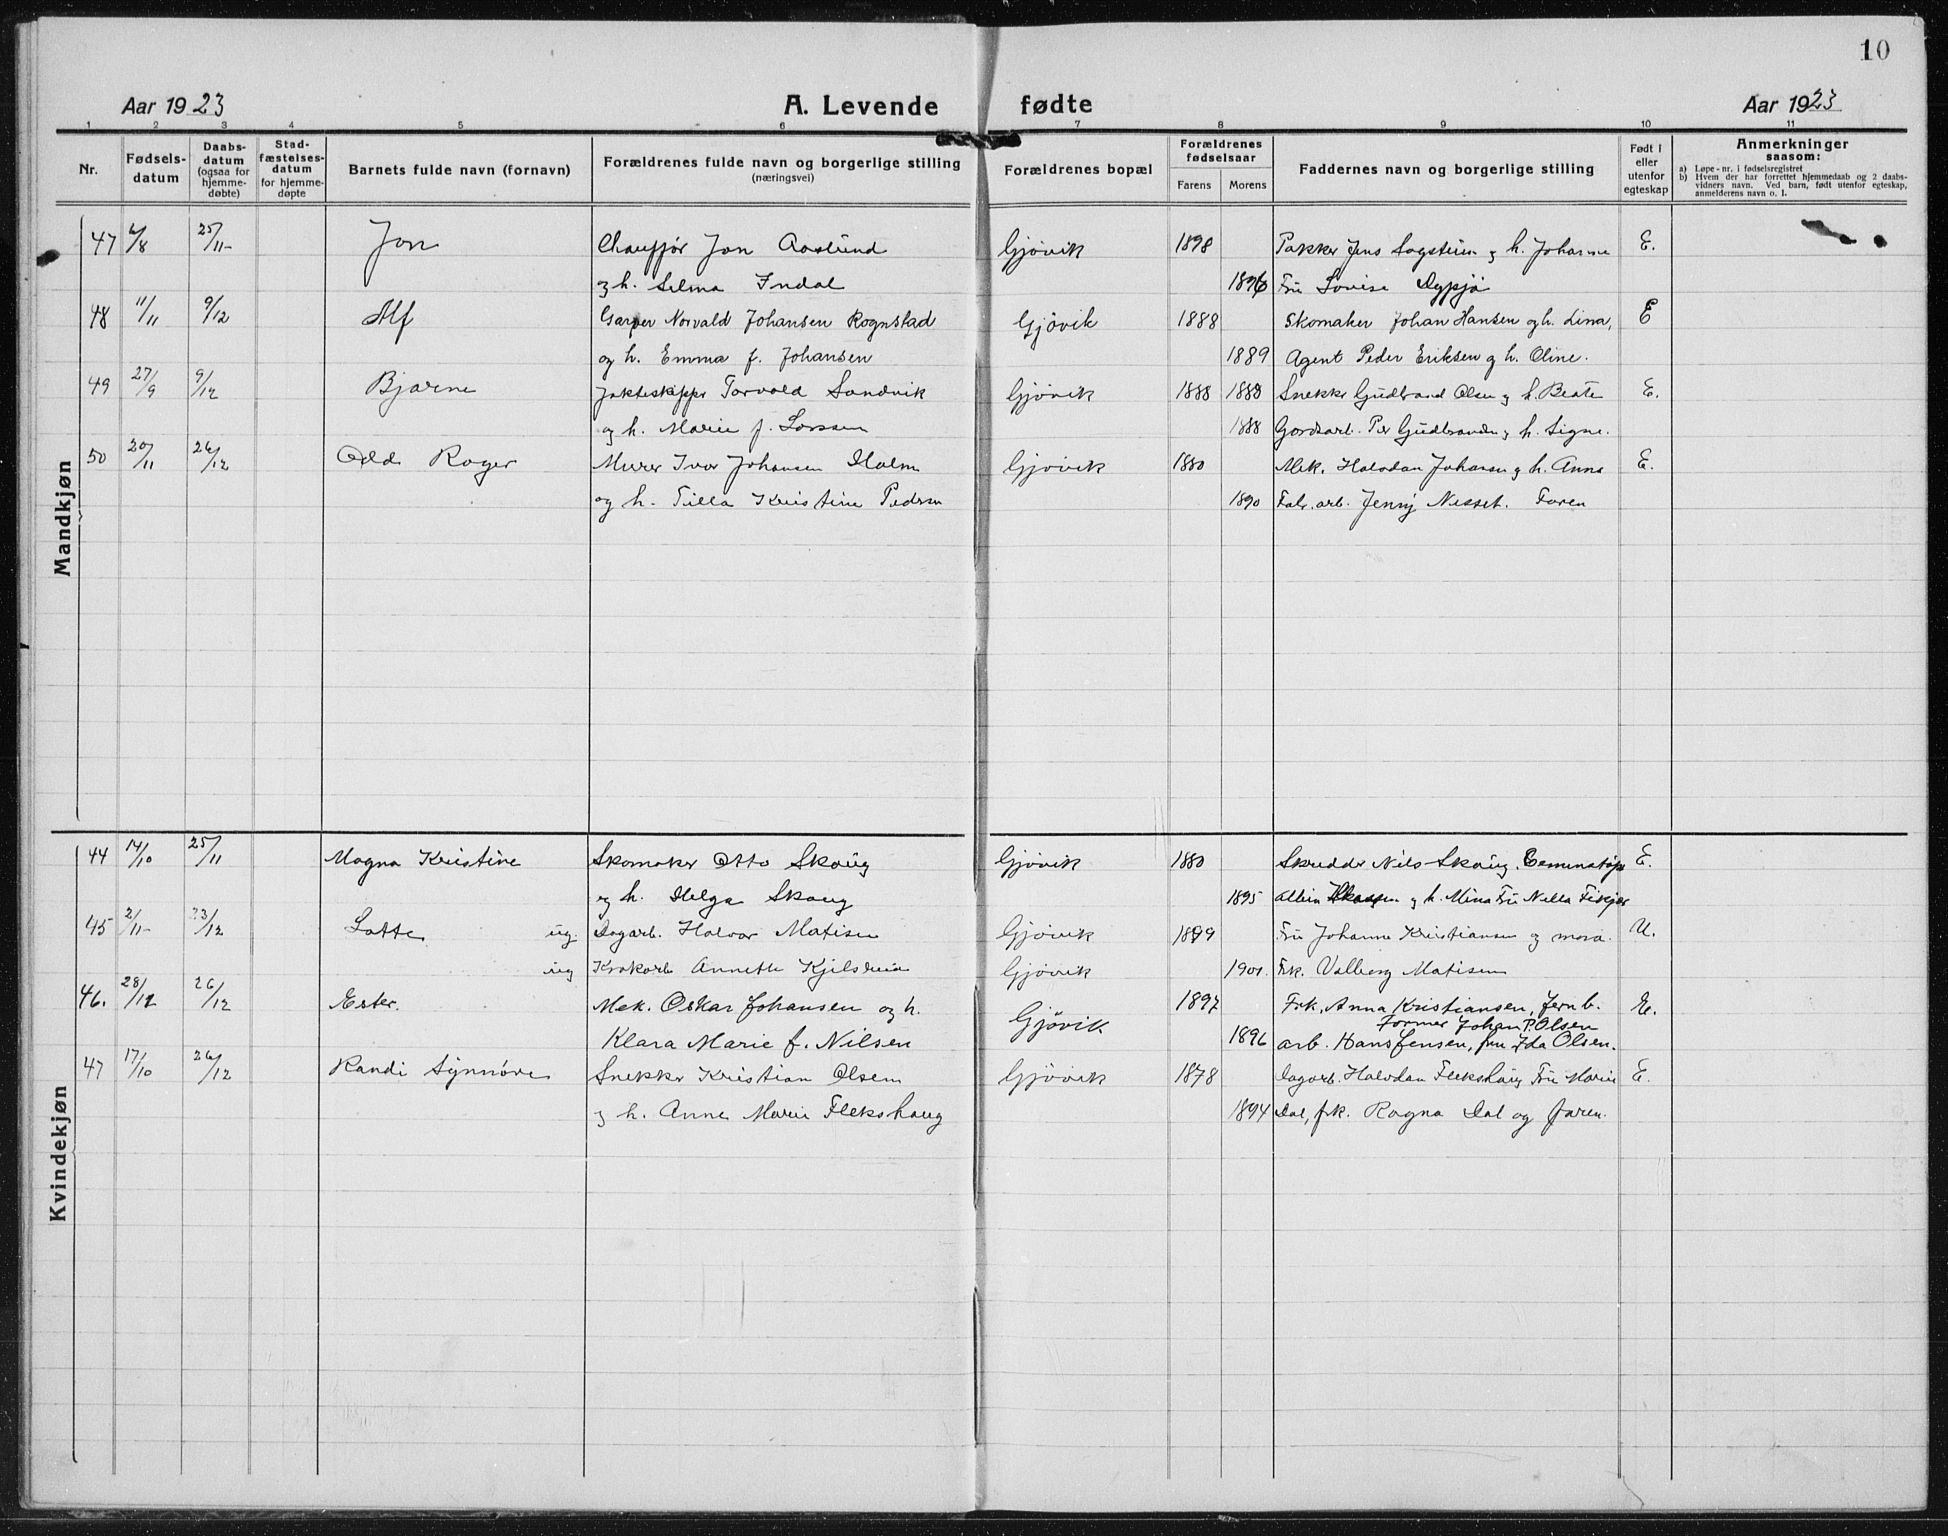 10
Aar 1923 A. Levende fødte Aar 1923
1 2 3 4 5 6 7 8 9 10 11
Nr. Fødsels-datum Daabs-datum (ogsaa for hjemme-døbte) Stad-fæstelses-datum for hjemme-døpte Barnets fulde navn (fornavn) Forældrenes fulde navn og borgerlige stilling (næringsvei) Forældrenes bopæl Forældrenes fødselsaar Farens Morens Faddernes navn og borgerlige stilling Født i eller utenfor egteskap Anmerkninger saasom:
a) Løpe-nr. i fødselsregistret
b) Hvem der har forrettet hjemmedaab og 2 daabs-vidners navn. Ved barn, født utenfor egteskap, anmelderens navn o. l.
Mandkjøn
47 /8 25/11- Jon Chauffør Jon Aaslund Gjøvik 1898 Pakker Jens Sagstuen og h. Johanne E.
og h. Selma Indal 1896 Fru Lovise
48 11/11 9/12 Alf Garver Norvald Johansen Rognstad Gjøvik 1888 Skomaker Johan Hansen og h. Lina, E
og h. Emma f. Johansen 1889 Agent Peder Eriksen og h. Oline.
49 27/9 9/12 Bjarne Jakteskipper Torvald Sandvik Gjøvik 1888 1888 Snekker Gudbrand Olsen og h. Beate E.
og h. Marie f. Larsen 1888 Gardsarb. Per Gudbrandsen og h. Signe.
50 20/11 26/12 Odd Roger Murer Ivar Johansen Holm Gjøvik 1880 Mek. Halvdan Johansen og h. Anna E.
og h. Tilla Kristine Pedersen 1890 Fabr. arb. Jenny Nesset. Faren
Kvindekjøn
44 14/10 25/11 Magna Kristine Skomaker Otto Skaug Gjøvik 1880 Skrædder Nils Skaug. Cementstøper E.
og h. Helga Skaug 1895 Albin og h. Mina Fru Nella
45 2/11- 23/12 Lotte ug. Dagarb. Halvar Matisen Gjøvik 1899 Fru Johanne Kristiansen og mora. U.
ug Annette Gjøvik 1901. Frk. Valborg Matisen
46. 28/12 26/12 Ester. Mek. Oskar Johansen og h. Gjøvik 1897 Frk. Anna Kristiansen, Jernb. E.
Former Johan P. Olsen
Klara Marie f. Nilsen 1896 arb. Hans Jensen, fru Ida Olsen.
47 17/10 26/12 Randi Synnøve Snekker Kristian Olsen Gjøvik 1878 Dagarb. Halvdan Flekshaug Fru Marie E.
og h. Anne Marie Flekshaug 1894 Dal, frk. Ragna Dal og faren.